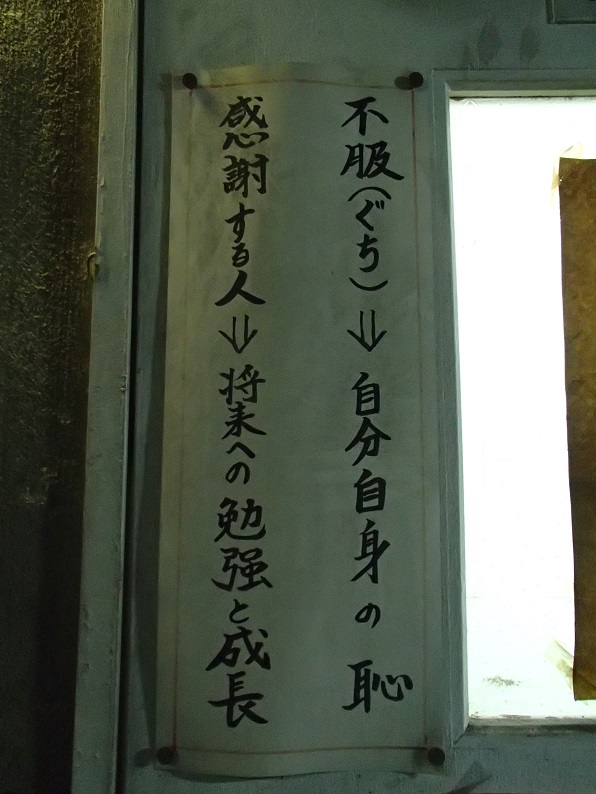 不服(ぐち)⇒自分自身の恥
感謝する人⇒将来への勉強と成長